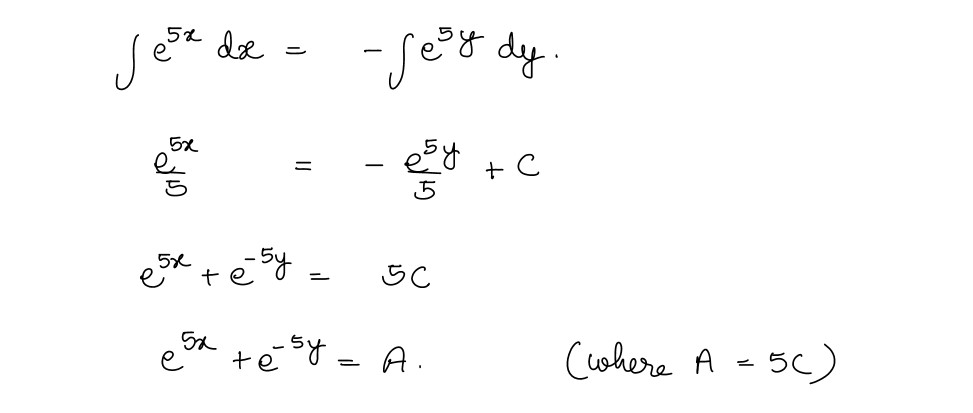 ∫ e^{5x} dx = - ∫ e^{5y} dy.
e^{5x}/5 = - e^{5y}/5 + C
e^{5x} + e^{-5y} = 5C
e^{5x} + e^{-5y} = A. (where A = 5C)